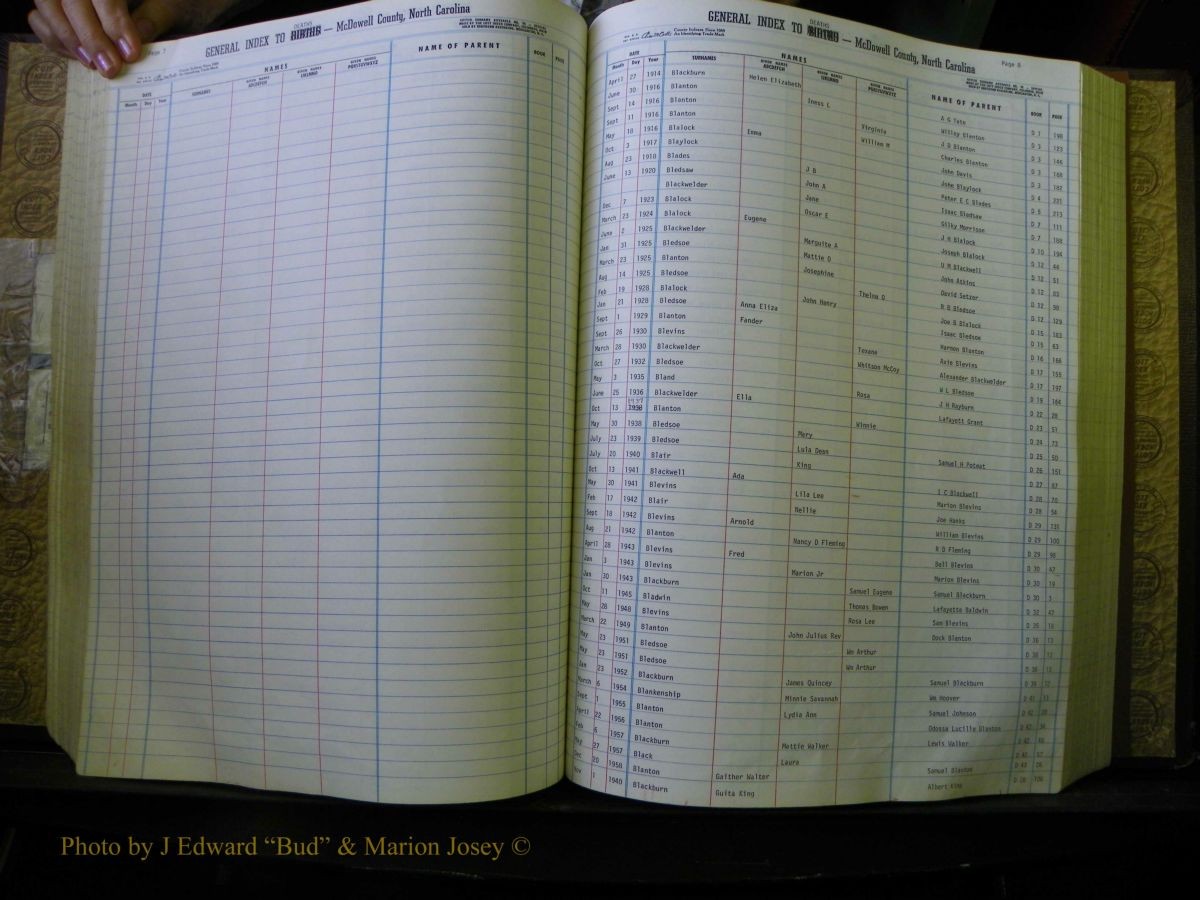 Page 7
GENERAL INDEX TO DEATHS BIRTHS — McDowell County, North Carolina
DATE NAMES NAME OF PARENT BOOK PAGE
Month Day Year SURNAMES GIVEN NAMES ABCDEFGH GIVEN NAMES IJKLMNO GIVEN NAMES PQRSTUVWXYZ
GENERAL INDEX TO DEATHS BIRTHS — McDowell County, North Carolina
Page 8
DATE NAMES NAME OF PARENT BOOK PAGE
Month Day Year SURNAMES GIVEN NAMES ABCDEFGH GIVEN NAMES IJKLMNO GIVEN NAMES PQRSTUVWXYZ
April 27 1914 Blackburn Helen Elizabeth A G Tate D 1 198
June 30 1916 Blanton Iness L Willey Blanton D 3 123
Sept 14 1916 Blanton Virginia J D Blanton D 3 146
Sept 11 1916 Blanton William M Charles Blanton D 3 168
May 18 1916 Blalock Emma John Davis D 3 182
Oct 3 1917 Blaylock J B John Blaylock D 4 231
Aug 23 1918 Blades John A Peter E C Blades D 5 213
June 13 1920 Bledsaw Jane Isaac Bledsaw D 7 111
Blackwelder Oscar E Gilky Morrison D 7 188
Dec 7 1923 Blalock Eugene J H Blalock D 10 194
March 23 1924 Blalock Marguite A Joseph Blalock D 12 44
June 2 1925 Blackwelder Mattie O U M Blackwell D 12 51
Jan 31 1925 Bledsoe Josephine John Atkins D 12 83
March 23 1925 Blanton Thelma O David Setzer D 12 98
Aug 14 1925 Bledsoe John Henry R B Bledsoe D 12 129
Feb 19 1928 Blalock Anna Eliza Joe B Blalock D 15 103
Jan 21 1928 Bledsoe Fander Isaac Bledsoe D 15 63
Sept 1 1929 Blanton Texane Harmon Blanton D 16 166
Sept 26 1930 Blevins Whitson McCoy Axie Blevins D 17 155
March 28 1930 Blackwelder Alexander Blackwelder D 17 197
Oct 27 1932 Bledsoe Rosa W L Bledsoe D 19 164
May 3 1935 Bland Ella J H Rayburn D 22 28
June 25 1936 Blackwelder Winnie Lafayett Grant D 23 51
Oct 13 1937 Blanton Mary D 24 73
May 30 1938 Bledsoe Lula Dean D 25 50
July 23 1939 Bledsoe King Samuel H Poteat D 26 151
July 20 1940 Blair Ada D 27 87
Oct 13 1941 Blackwell Lila Lee I C Blackwell D 28 70
May 30 1941 Blevins Nellie Marion Blevins D 28 54
Feb 17 1942 Blair Arnold Joe Hanks D 29
Sept 18 1942 Blevins Nancy D Fleming William Blevins D 29 100
Aug 21 1942 Blanton Fred R D Fleming D 29 98
April 28 1943 Blevins Marion Jr Bell Blevins D 30 47
Jan 3 1943 Blevins Marion Blevins D 30 19
Jan 30 1943 Blackburn Samuel Eugene Samuel Blackburn D 30 3
Oct 11 1945 Bladwin Thomas Bowen Lafayette Baldwin D 32 47
May 28 1948 Blevins Rosa Lee Sam Blevins D 35 18
March 22 1949 Blanton John Julius Rev Dock Blanton D 36 13
May 23 1951 Bledsoe Wm Arthur D 38 12
May 23 1951 Bledsoe Wm Arthur D 38 12
Jan 23 1952 Blackburn James Quincey Samuel Blackburn D 39
March 6 1954 Blankenship Minnie Savannah Wm Hoover D 41
Sept 1 1955 Blanton Lydia Ann Samuel Johnson D 42
April 22 1956 Blanton Odossa Lucille Blanton D
Feb 6 1957 Blackburn Mattie Walker Lewis Walker D
May 27 1957 Black Laura D
Dec 20 1958 Blanton Gaither Walter Samuel Blanton D
Nov 1 1940 Blackburn Guita King Albert King D
Photo by J Edward “Bud” & Marion Josey ©